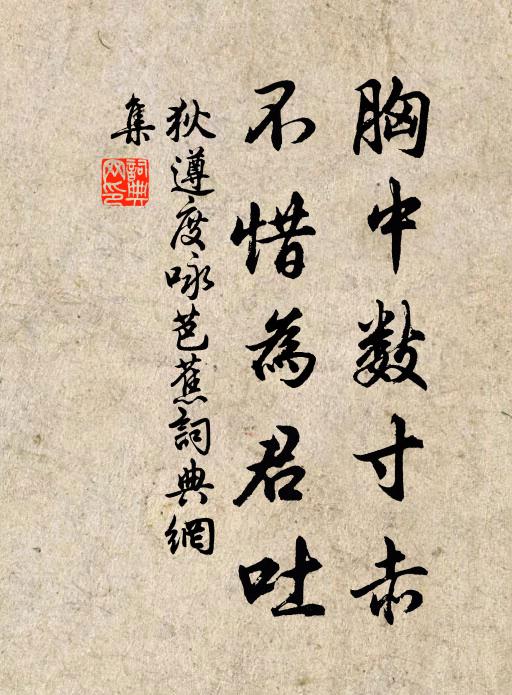 胸中数寸赤
不惜為君吐
狄遵度咏芭蕉詞典網
集
詞典網印